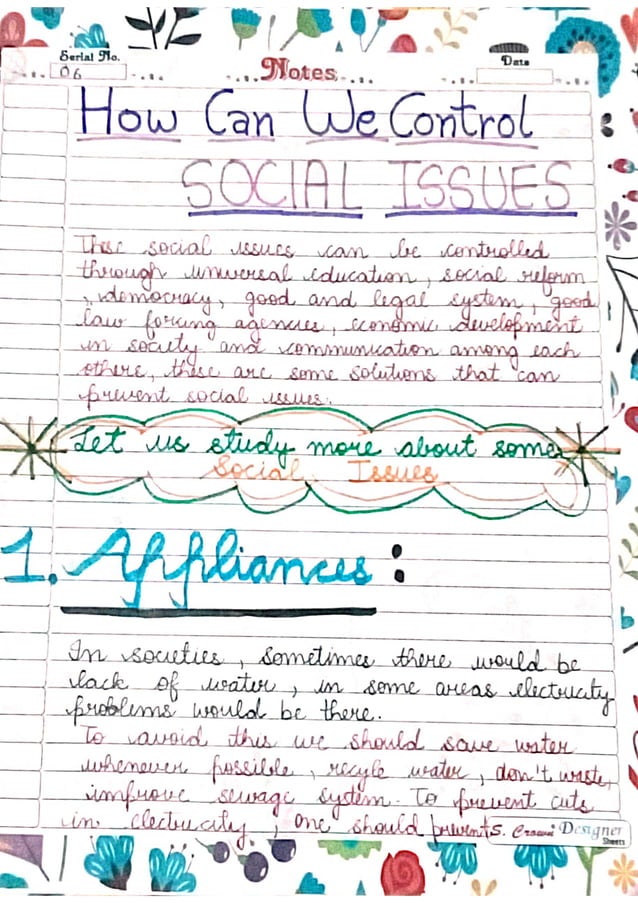 Serial No.
06
Notes
Date
How Can We Control
SOCIAL ISSUES
These social issues can be controlled
through universal education, social reform
, democracy, good and legal system, good
law forcing agencies, economic development
in society and communication among each
others, these are some solutions that can
prevent social issues.
Let us study more about some
Social Issues
1. Appliances:
In societies, sometimes there would be
lack of water, in some areas electricity
problems would be there.
To avoid this we should save water
whenever possible, recyle water, don't waste,
improve sewage system. To prevent cuts
in electricity, one should prevents.
Designer
Sheets